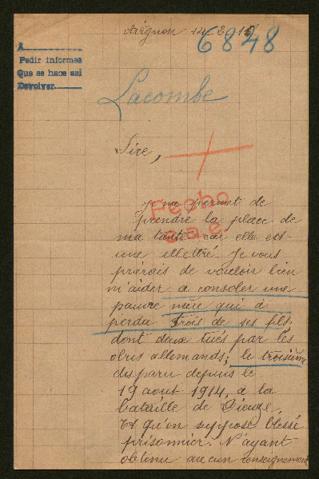 Avignon 12
6848
A
Pedir informes
Que se hace así
Devolver
Lacombe
Sire,
Fecho
Je me permet de
prendre la place de
ma tante car elle est
une illettré. Je vous
prierais de vouloir bien
m'aider a consoler une
pauvre mère qui à
perdu trois de ses fils
dont deux tués par les
obus allemands; le troisième
disparu depuis le
19 août 1914, a la
bataille de Dieuze,
Et qu'on suppose blessé
prisonnier. N'ayant
obtenu aucun renseignement